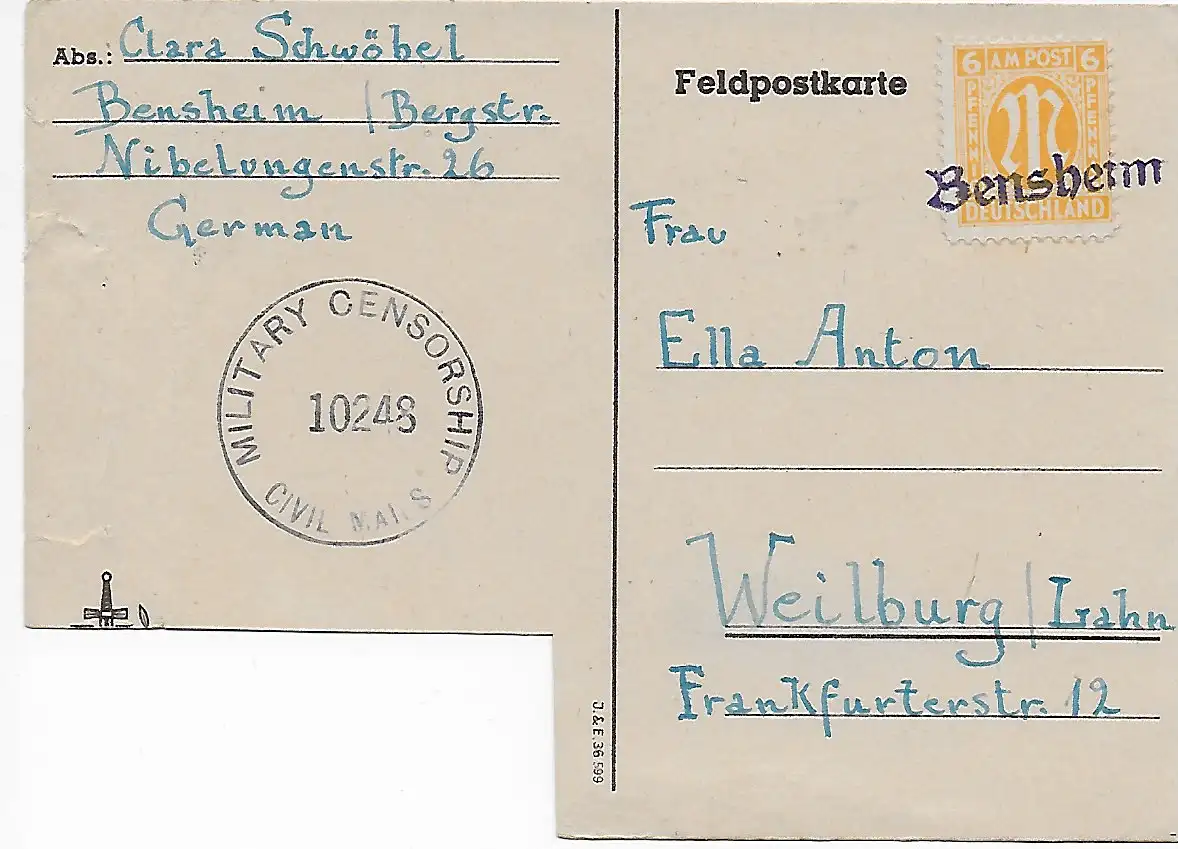 Abs.: Clara Schwöbel
Bensheim / Bergstr.
Nibelungenstr. 26
German
MILITARY CENSORSHIP
10248
CIVIL MAILS
Feldpostkarte
6 AM POST 6
PFENNIG PFENNIG
M
DEUTSCHLAND
Bensheim
Frau
Ella Anton
Weilburg / Lahn
Frankfurterstr. 12
J. & E. 36 599